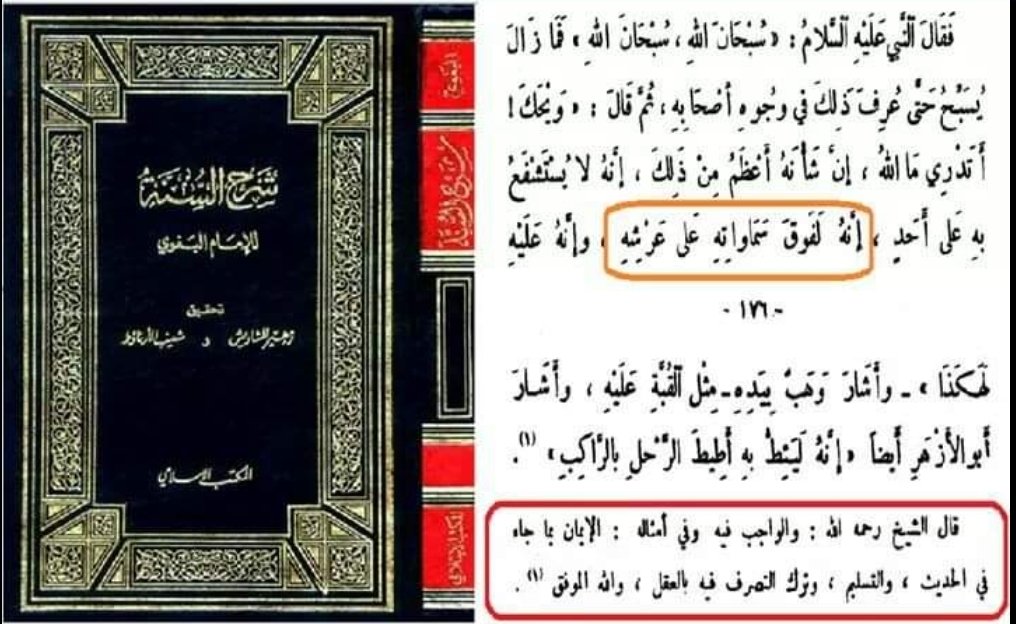 شرح السنة
للإمام البغوي
تحقيق
زهير الشاويش و شعيب الأرناؤط
المكتب الإسلامي
البغوي
شرح السنة
المكتب الإسلامي
فَقَالَ ٱلنَّبِي عَلَيْهِ ٱلسَّلامُ : « سُبْحَانَ اللهِ ، سُبْحَانَ اللهِ » فَمَا زَالَ
يُسَبِّحُ حَتَّى عُرِفَ ذٰلِكَ فِي وُجُوهِ أَصْحَابِهِ ، ثُمَّ قَالَ : « وَيْحَكَ !
أَتَدْرِي مَا اللهُ ، إِنَّ شَأْنَهُ أَعْظَمُ مِنْ ذٰلِكَ ، إِنَّهُ لا يُسْتَشْفَعُ
بِهِ عَلَى أَحَدٍ ، إِنَّهُ لَفَوْقَ سَمَاواتِهِ عَلَى عَرْشِهِ ، وإِنَّهُ عَلَيْهِ
- ١٧٦ -
لَهٰكَذَا » ـ وأَشَارَ وَهَبٌ بِيَدِهِ ـ مِثْلَ ٱلْقُبَّةِ عَلَيْهِ ، وأَشَارَ
أَبو الأَزْهَرِ أَيضاً « إِنَّهُ لَيَئِطُّ بِهِ أَطِيطَ الرَّحْلِ بِالرَّاكِبِ » (١) .
قال الشيخ رحمه الله : والواجب فيه وفي أمثاله : الإيمان بما جاء
في الحديث ، والتسليم ، وترك التصرف فيه بالعقل ، والله الموفق (١) .